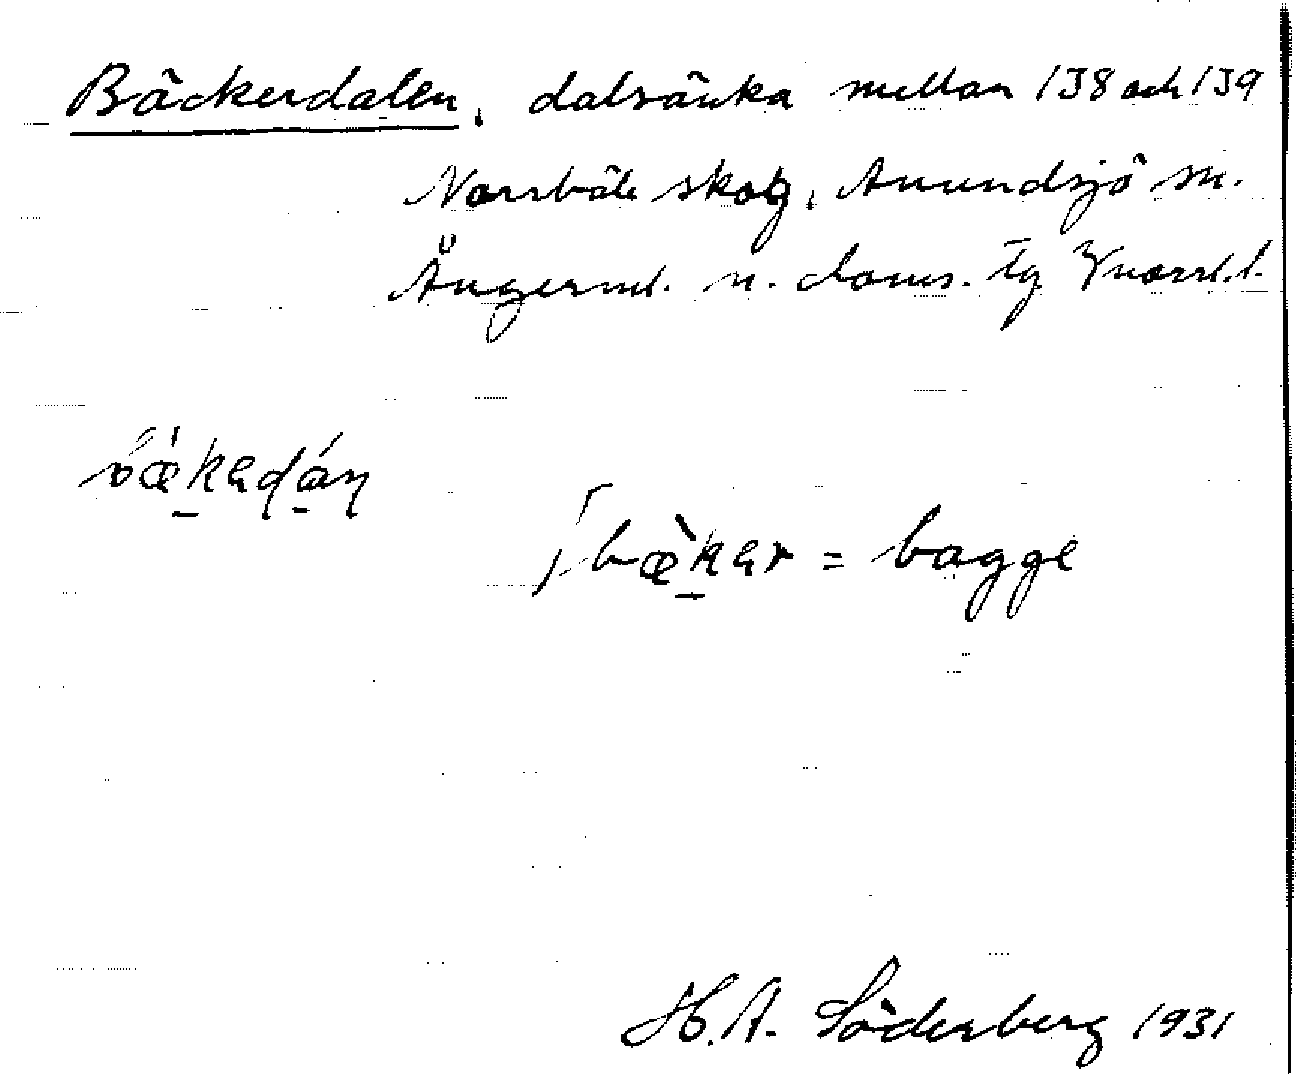 Bäckerdalen, dalsänka mellan 138 och 139
Norrböle skog, Anundsjö sn.
Ångerml. n. doms.
bækadáṇ
bæ̀kar = bagge
H. A. Söderberg 1931